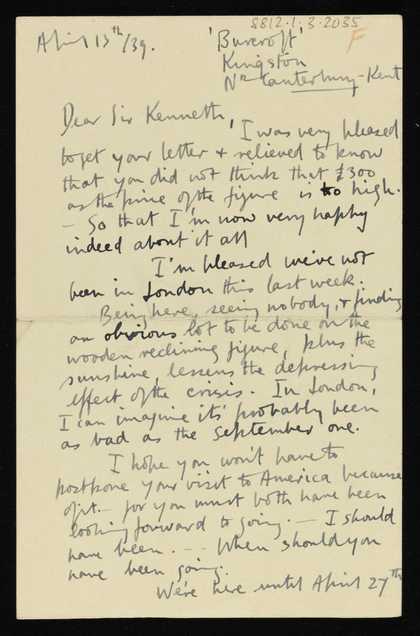 8812.1.3.2035
F
April 13th/39.
'Burcroft'
Kingston
Nr Canterbury - Kent
Dear Sir Kenneth,
I was very pleased
to get your letter & relieved to know
that you did not think that £300
as the price of the figure is too high.
– So that I'm now very happy
indeed about it all
I'm pleased we've not
been in London this last week.
Being here, seeing nobody, & finding
an obvious lot to be done on the
wooden reclining figure, plus the
sunshine, lessens the depressing
effect of the crisis. In London,
I can imagine it's probably been
as bad as the September one.
I hope you won't have to
postpone your visit to America because
of it – for you must both have been
looking forward to going. – I should
have been. – . When should you
have been going.
We're here until April 27th